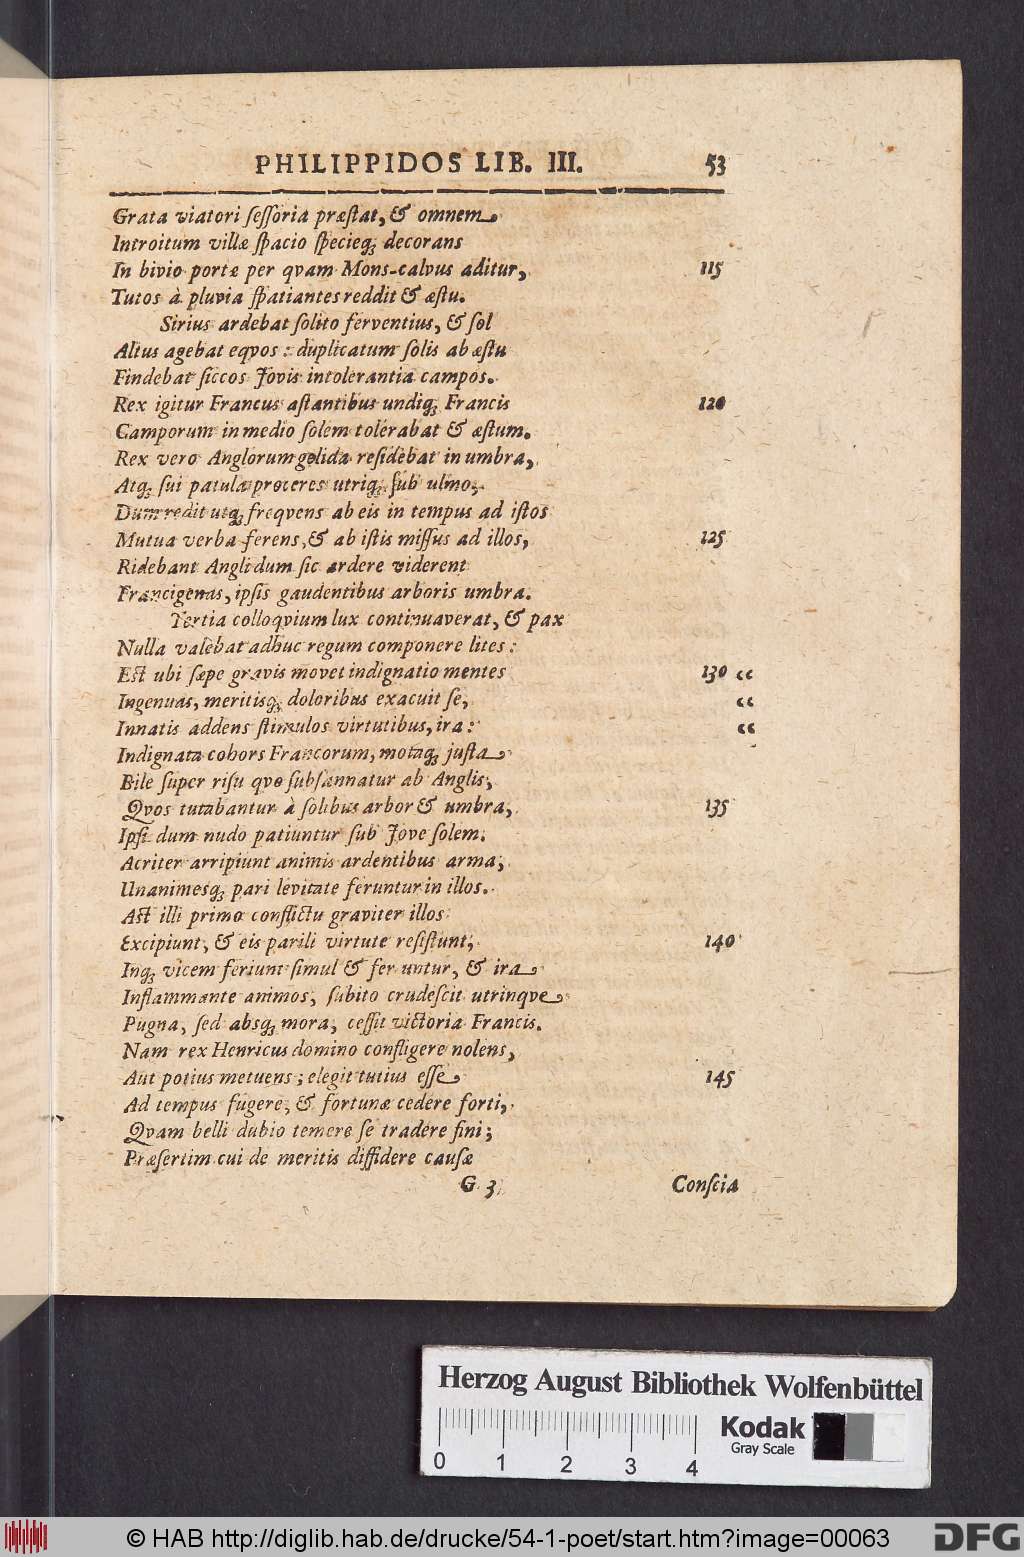 PHILIPPIDOS LIB. III. 53
Grata viatori ſeſſoria præſtat, & omnem
Introitum villæ ſpacio ſpecieq; decorans
In bivio portæ per qvam Mons-calvus aditur, 115
Tutos à pluvia ſpatiantes reddit & æſtu.
Sirius ardebat ſolito ferventius, & ſol
Altus agebat eqvos : duplicatum ſolis ab æſtu
Findebat ſiccos Jovis intolerantia campos.
Rex igitur Francus aſtantibus undiq; Francis 120
Camporum in medio ſolem tolerabat & æſtum.
Rex vero Anglorum gelida reſidebat in umbra,
Atq; ſui patula proceres utriq; ſub ulmo;
Dum redit utq; freqvens ab eis in tempus ad iſtos
Mutua verba ferens, & ab iſtis miſſus ad illos, 125
Ridebant Angli dum ſic ardere viderent
Francigenas, ipſis gaudentibus arboris umbra.
Tertia colloqvium lux continuaverat, & pax
Nulla valebat adhuc regum componere lites :
Eſt ubi ſæpe gravis movet indignatio mentes 130 “
Ingenuas, meritisq; doloribus exacuit ſe, “
Innatis addens ſtimulos virtutibus, ira : “
Indignata cohors Francorum, motaq; juſta
Bile ſuper riſu qvo ſubſannatur ab Anglis,
Qvos tutabantur à ſolibus arbor & umbra, 135
Ipſi dum nudo patiuntur ſub Jove ſolem.
Acriter arripiunt animis ardentibus arma,
Unanimesq; pari levitate feruntur in illos.
Aſt illi primo conflictu graviter illos
Excipiunt, & eis parili virtute reſiſtunt, 140
Inq; vicem feriunt ſimul & feruntur, & ira
Inflammante animos, ſubito crudeſcit utrinqve
Pugna, ſed absq; mora, ceſſit victoria Francis.
Nam rex Henricus domino confligere nolens,
Aut potius metuens; elegit tutius eſſe 145
Ad tempus fugere, & fortunæ cedere forti,
Qvam belli dubio temere ſe tradere fini;
Præſertim cui de meritis diffidere cauſæ
G 3 Conſcia
Herzog August Bibliothek Wolfenbüttel
0 1 2 3 4
Kodak
Gray Scale
© HAB http://diglib.hab.de/drucke/54-1-poet/start.htm?image=00063
DFG